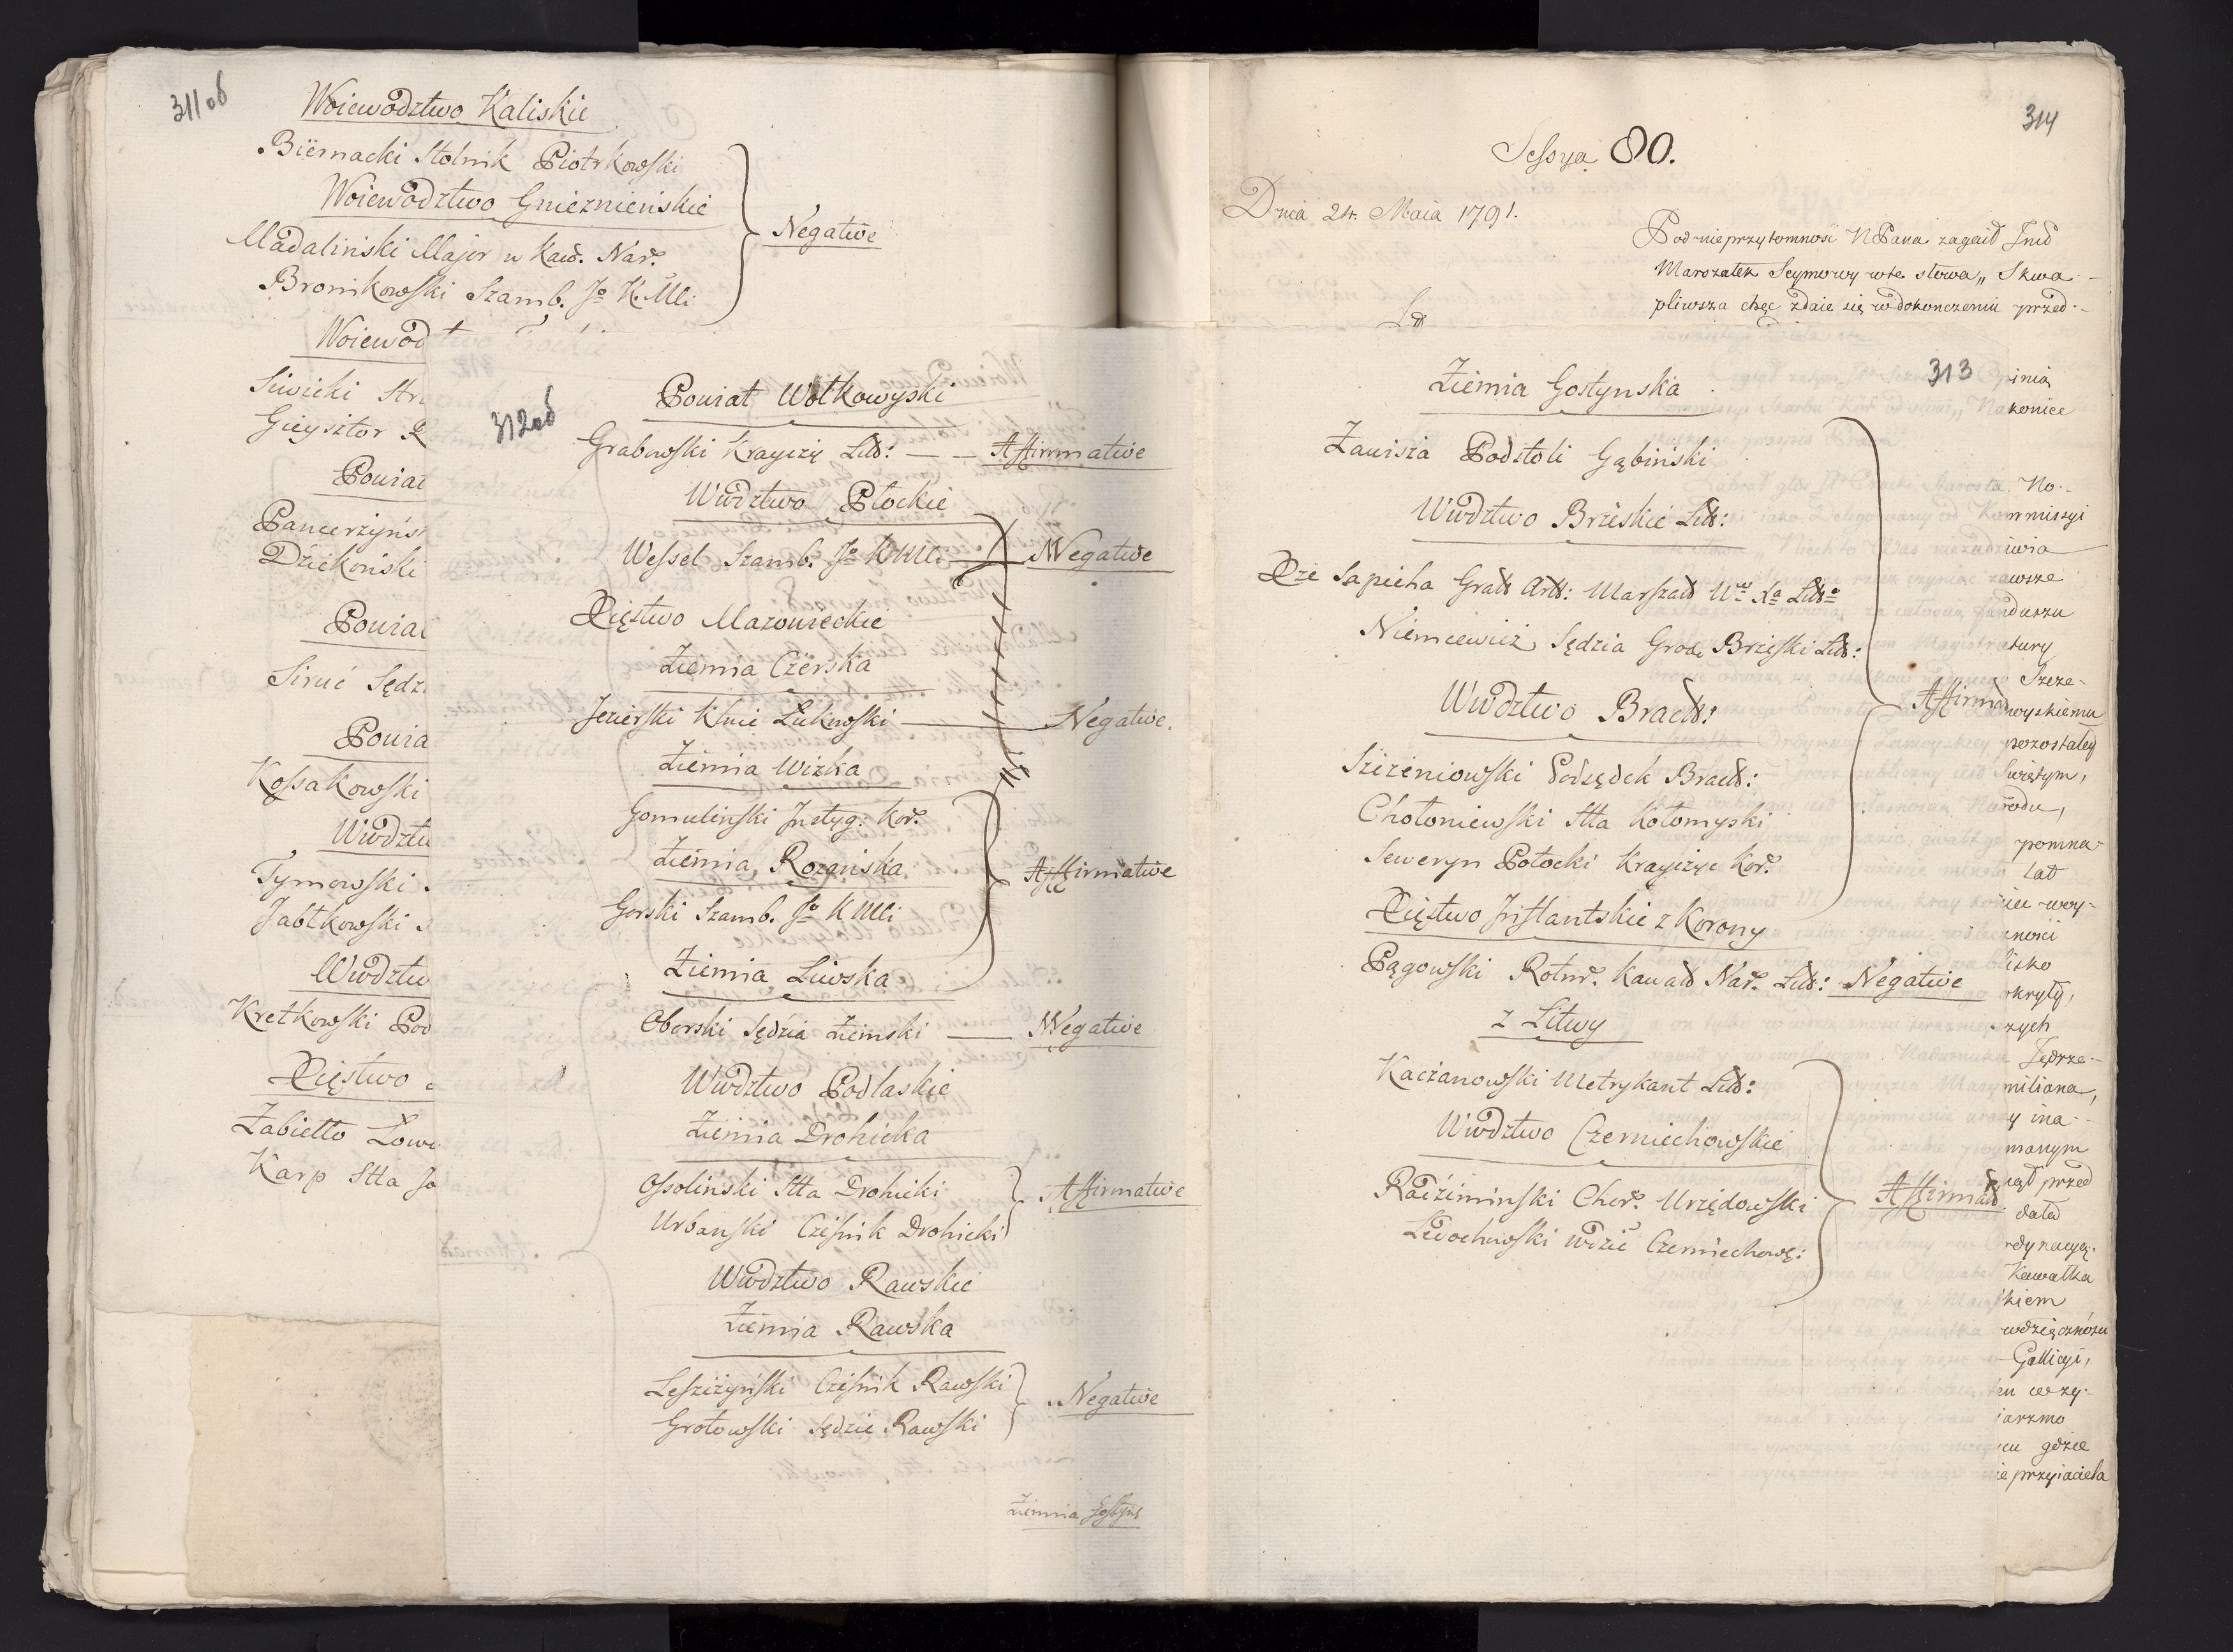 311 об
Woiewodztwo Kaliskie
Biernacki Stolnik Piotrkowski
Woiewodztwo Gnieznieńskie
Negative
Madaliński Major w Kaw. Nar.
Bronikowski Szamb. Jo K. Mci
Woiewod
Siwicki Str
Gieysztor R
Powiat
Pancerzyńs
Dziekoński
Powiat
Siruć Sędz
Powia
Kossakowski
Wwdztw
Tymowski
Jabłkowski
Wwdztw
Kretkowski Pod
Xięstwo
Zabiełło Łow
Karp Stta Ja
312 об
Powiat Wołkowyski
Grabowski Krayczy Litt: — — Affirmative
Wwdztwo Płockie
Wessel Szamb. Jo K Mci — Negative
Xięstwo Mazowieckie
Ziemia Czerska
Jezierski Kłnie Łukowski — Negative.
Ziemia Wizka
Gomuliński Instyg. Kor.
Ziemia Rozańska
Affirmative
Gorski Szamb. Jo K Mci
Ziemia Liwska
Oborski Sędzia Ziemski — Negative
Wwdztwo Podlaskie
Ziemia Drohicka
Ossoliński Stta Drohicki
Affirmative
Urbański Czesnik Drohicki
Wwdztwo Rawskie
Ziemia Rawska
Leszczyński Czesnik Rawski
Negative
Grotowski Sędzie Rawski
Ziemia Gostyns
314
Sessya 80.
Dnia 24. Maia 1791.
Pod nieprzytomność NPana zagaił Jmć
Marszałek Seymowy w te słowa „ Skwa-
pliwsza chęć zdaie się w dokonczeniu przed-
313
Ziemia Gostynska
Zawisza Podstoli Gąbiński
Wwdztwo Brzeskie Litt:
Xże Sapieha Gral Artt: Marszał Wo Xa Litto
Niemcewicz Sędzia Grodz Brzeski Litt:
Wwdztwo Bracł:
Affirmat
Szczeniowski Podsędek Bracł:
Chołoniewski Stta Kołomyski
Seweryn Potocki Krayczyc Kor.
Xięstwo Inflantskie z Korony
Pągowski Rotm. Kawał Nar. Litt: Negative
z Litwy
Kaczanowski Metrykant Litt:
Wwdztwo Czerniechowskie
Radzimiński Chor. Urzędowski
Affirmat
Ledochowski Wdzic Czerniechows:
inia
konice
No-
mmiszyi
iwia
awsze
unduszu
tury
Szcze-
oyskiemu
pozostałey
Swiętym,
rodu,
pomna-
lat
iec woy-
zności
lisko
kryty,
zych
Jędrze-
miliana,
y ina-
manym
ząd przed
dała
rdynacyą.
Kawałka
skiem
wdzięcznosci
Gallicyi,
en wzy-
iarzmo
cu gdzie
ie przyiaciela